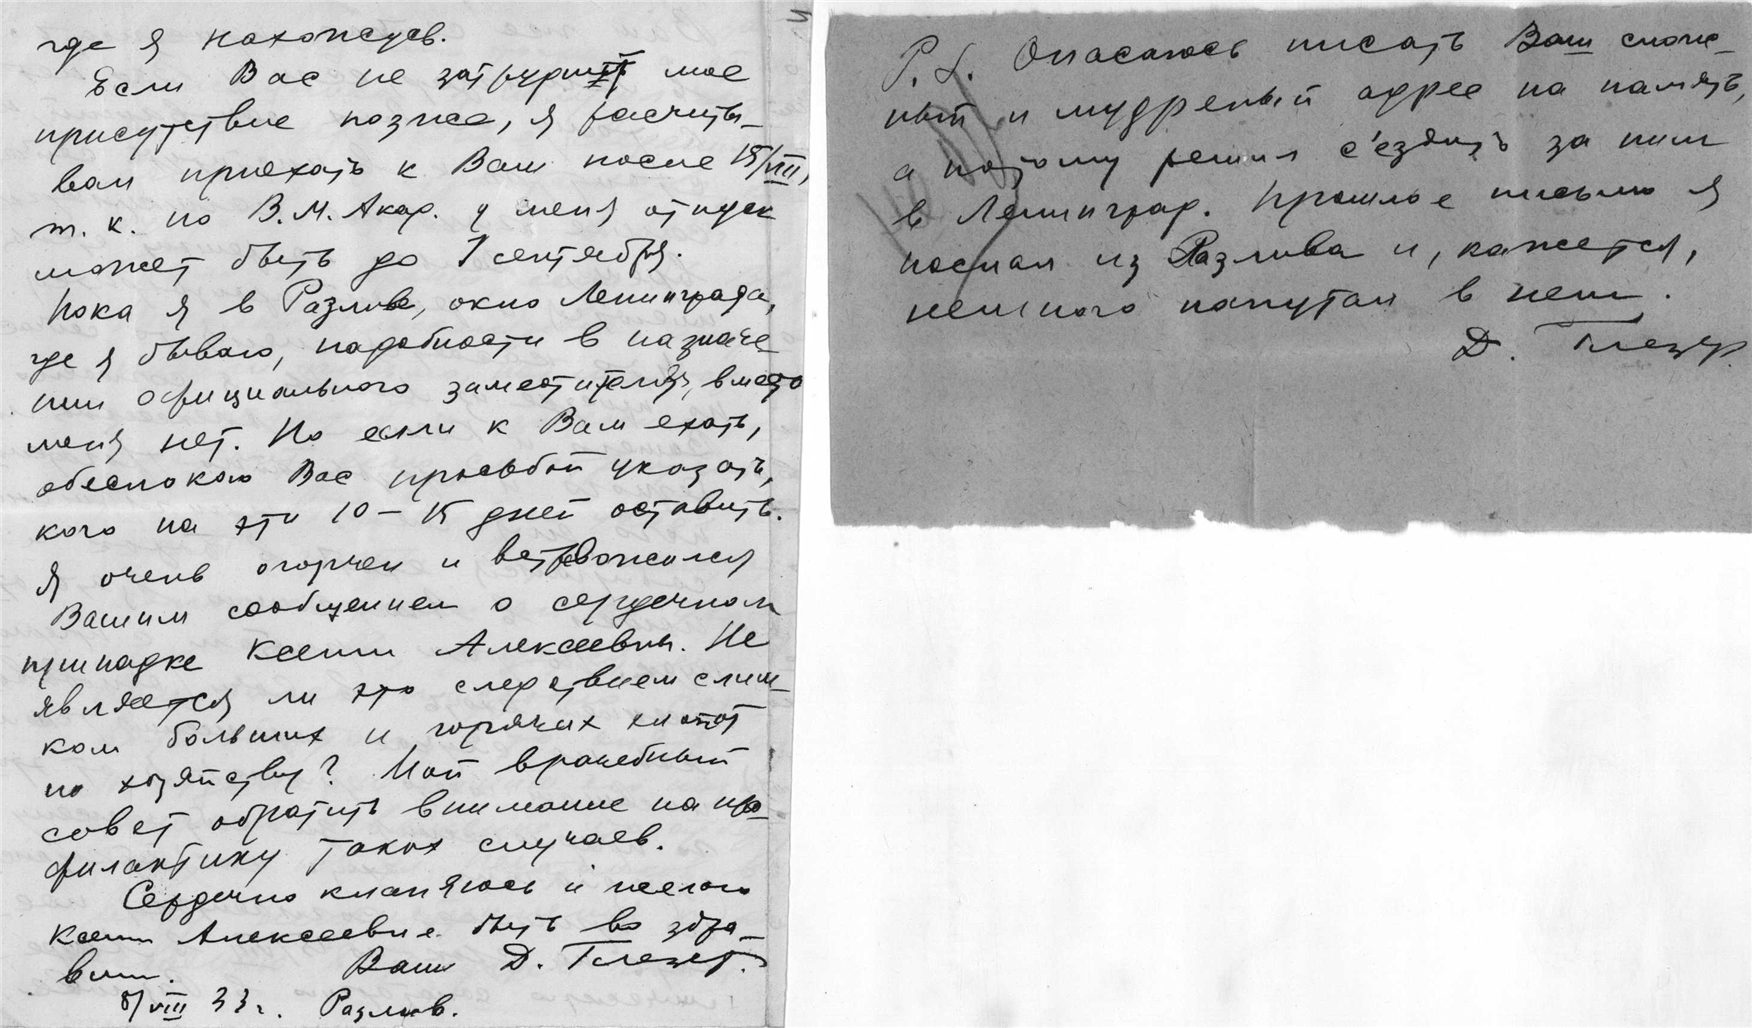 где я нахожусь.
Если Вас не затруднит мое
присутствие позже, я расчиты-
ваю приехать к Вам после 15/VIII,
т. к. по В.М.Акад. у меня отпуск
может быть до 1 сентября.
Пока я в Разливе, около Ленинграда,
где я бываю, надобности в назначе
нии официального заместителя, вместо
меня нет. Но если к Вам ехать,
обеспокою Вас просьбой указать,
кого на эти 10 – 15 дней оставить.
Я очень огорчен и встревожился
Вашим сообщением о сердечном
припадке Ксении Алексеевны. Не
является ли это следствием слиш-
ком больших и горячих хлопот
по хозяйству? Мой врачебный
совет обратить внимание на про-
филактику таких случаев.
Сердечно кланяюсь и желаю
Ксении Алексеевне быть во здра-
вии. Ваш Д. Глезер.
8/VIII 33 г. Разлив.
P.S. Опасаюсь писать Ваш слож-
ный и мудреный адрес на память,
а потому решил с'ездить за ним
в Ленинград. Прошлое письмо я
послал из Разлива и, кажется,
немного напутал в нем.
Д. Глезер